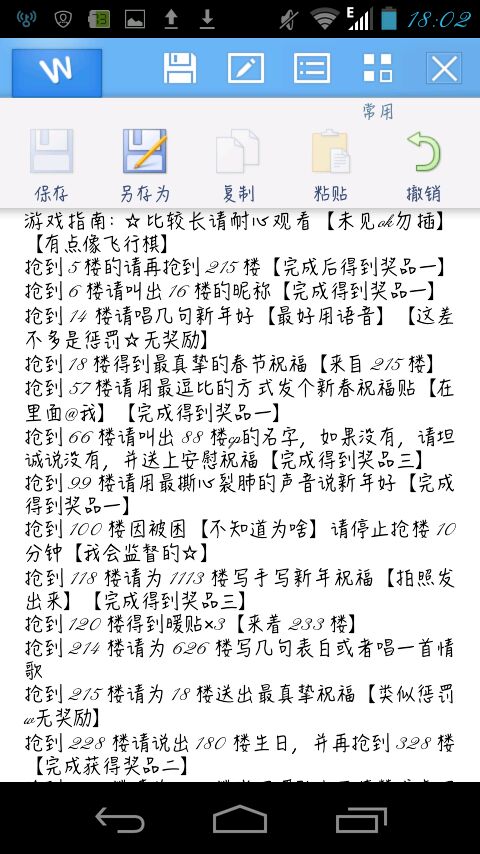 E
18:02
W
常用
保存
另存为
复制
粘贴
撤销
游戏指南：☆比较长请耐心观看【未见ok勿插】
【有点像飞行棋】
抢到5楼的请再抢到215楼【完成后得到奖品一】
抢到6楼请叫出16楼的昵称【完成得到奖品一】
抢到14楼请唱几句新年好【最好用语音】【这差
不多是惩罚☆无奖励】
抢到18楼得到最真挚的春节祝福【来自215楼】
抢到57楼请用最逗比的方式发个新春祝福贴【在
里面@我】【完成得到奖品一】
抢到66楼请叫出88楼gp的名字，如果没有，请坦
诚说没有，并送上安慰祝福【完成得到奖品三】
抢到99楼请用最撕心裂肺的声音说新年好【完成
得到奖品一】
抢到100楼因被困【不知道为啥】请停止抢楼10
分钟【我会监督的☆】
抢到118楼请为1113楼写手写新年祝福【拍照发
出来】【完成得到奖品三】
抢到120楼得到暖贴×3【来着233楼】
抢到214楼请为626楼写几句表白或者唱一首情
歌
抢到215楼请为18楼送出最真挚祝福【类似惩罚
w无奖励】
抢到228楼请说出180楼生日，并再抢到328楼
【完成获得奖品二】